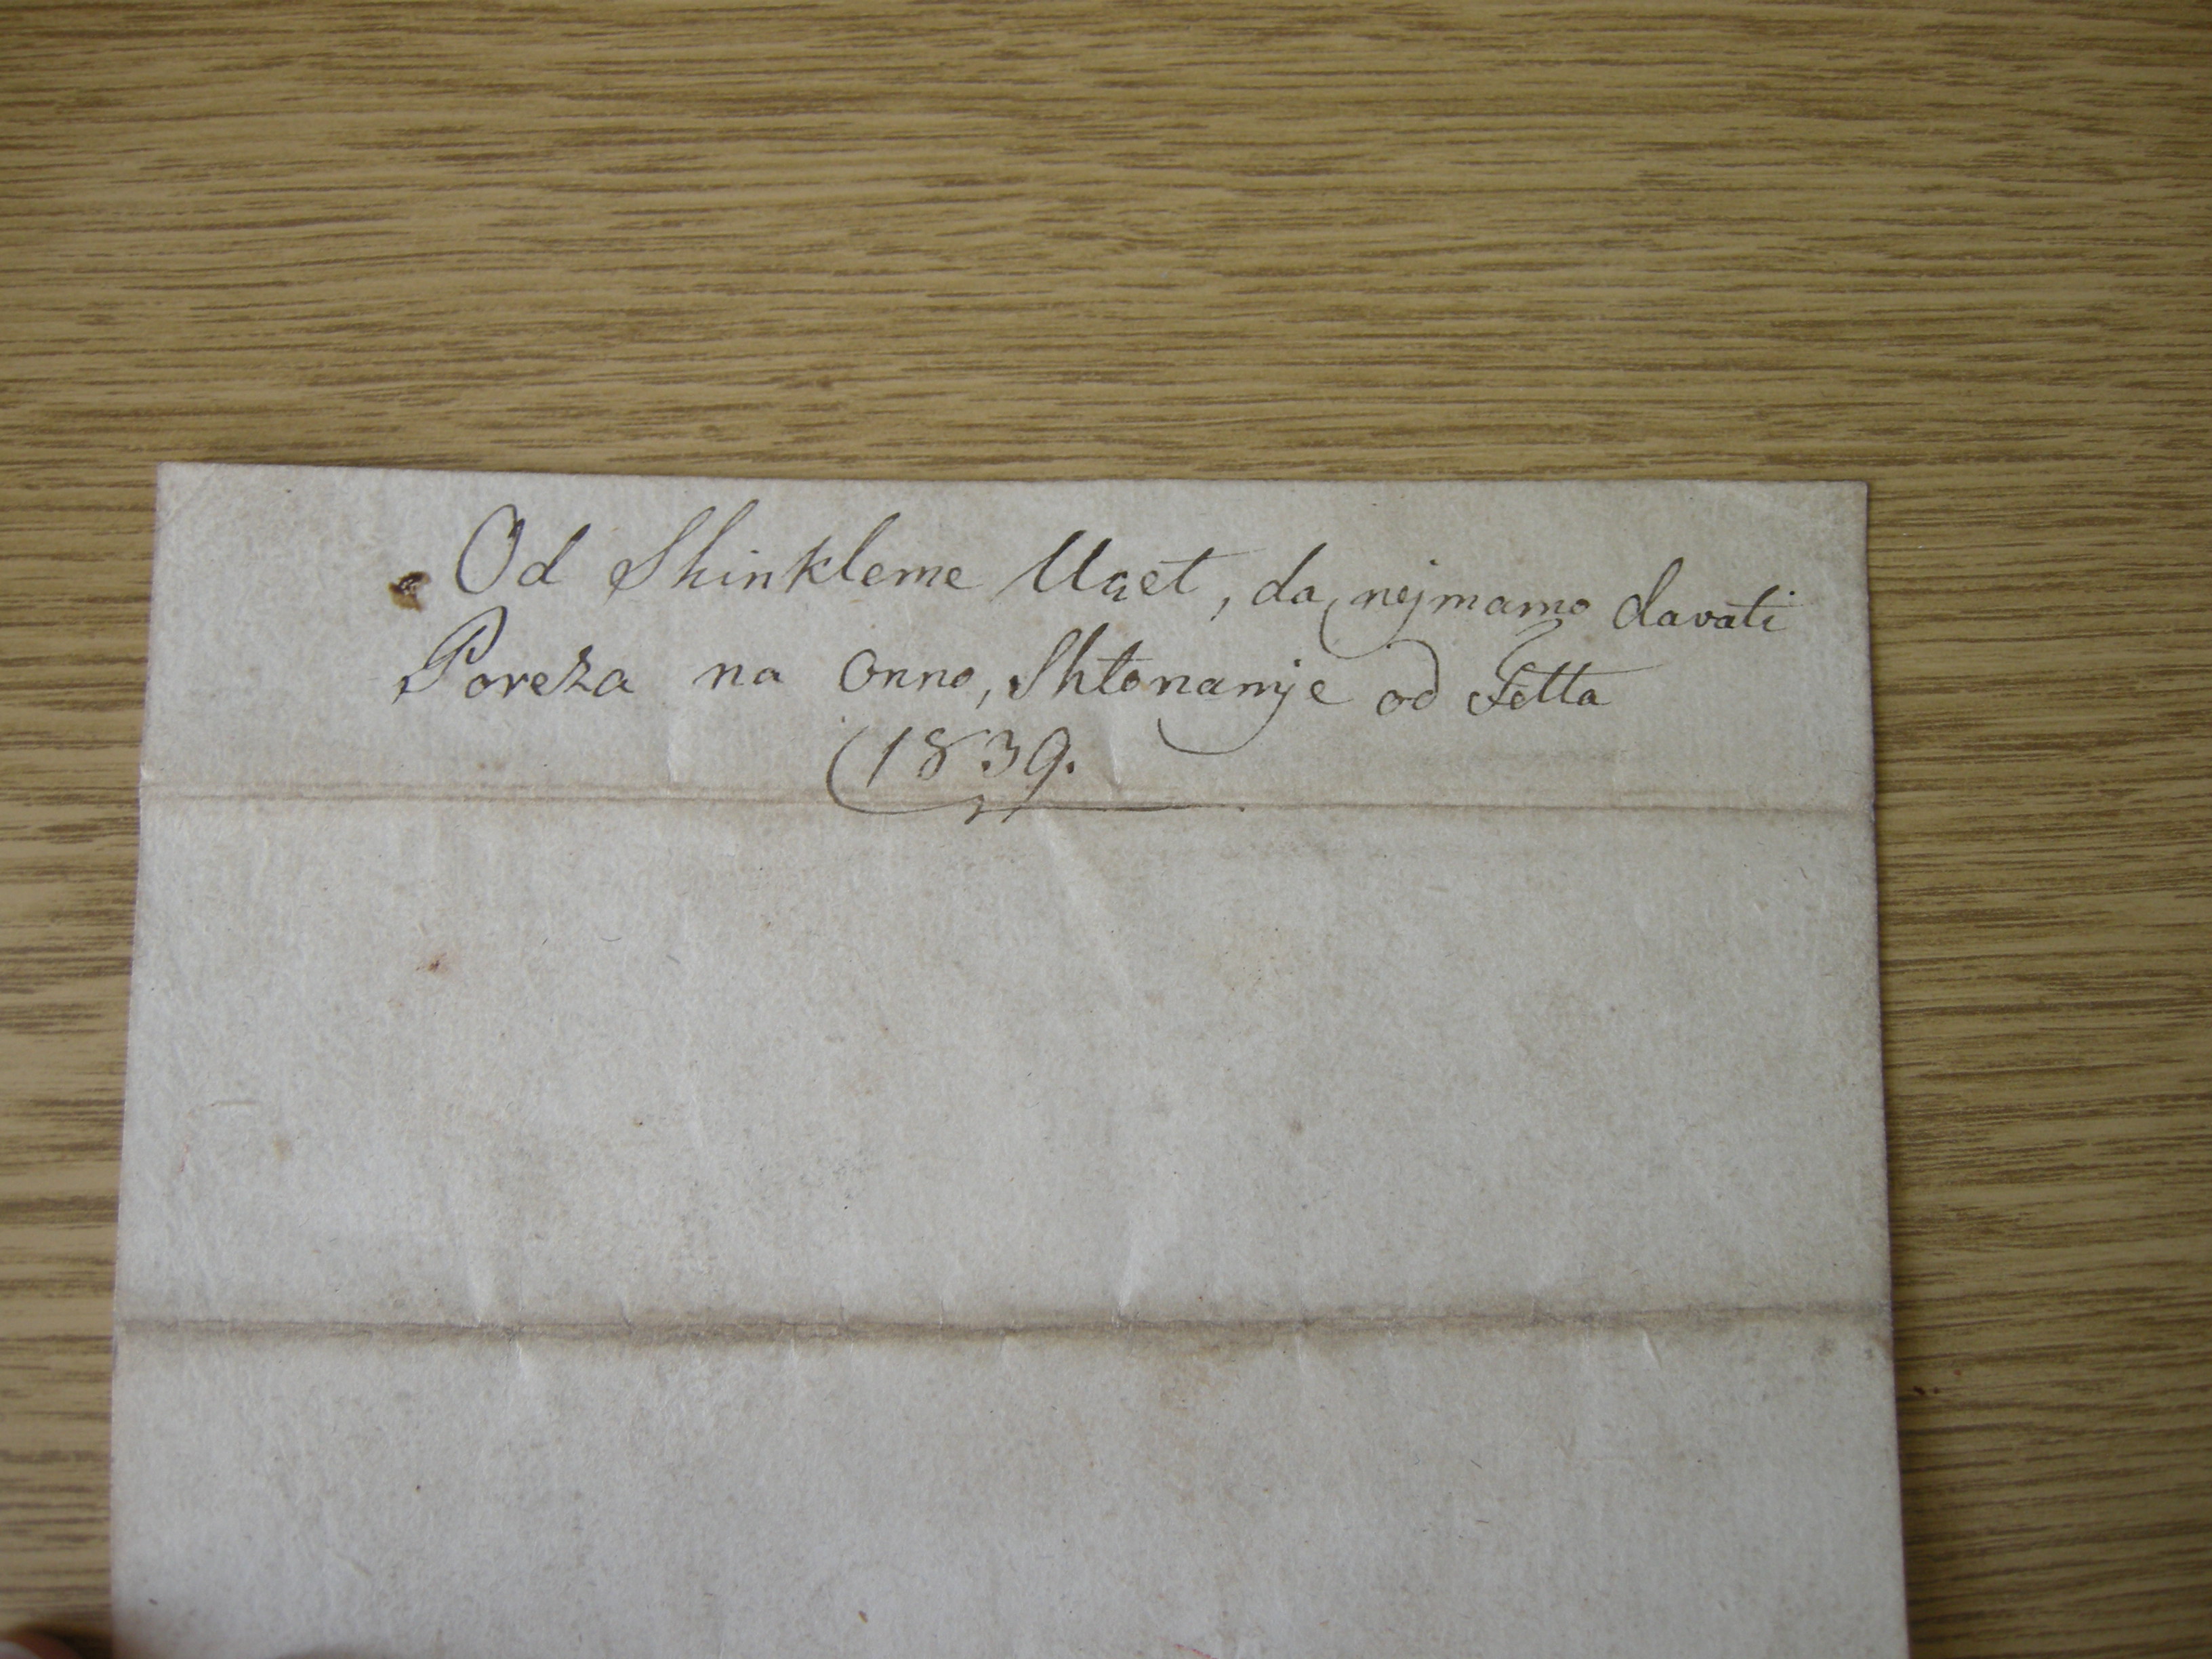 Od Shinkleme Uzet, da nejmamo davati
Poreza na onno, Shtonamje od Fetta
1839.